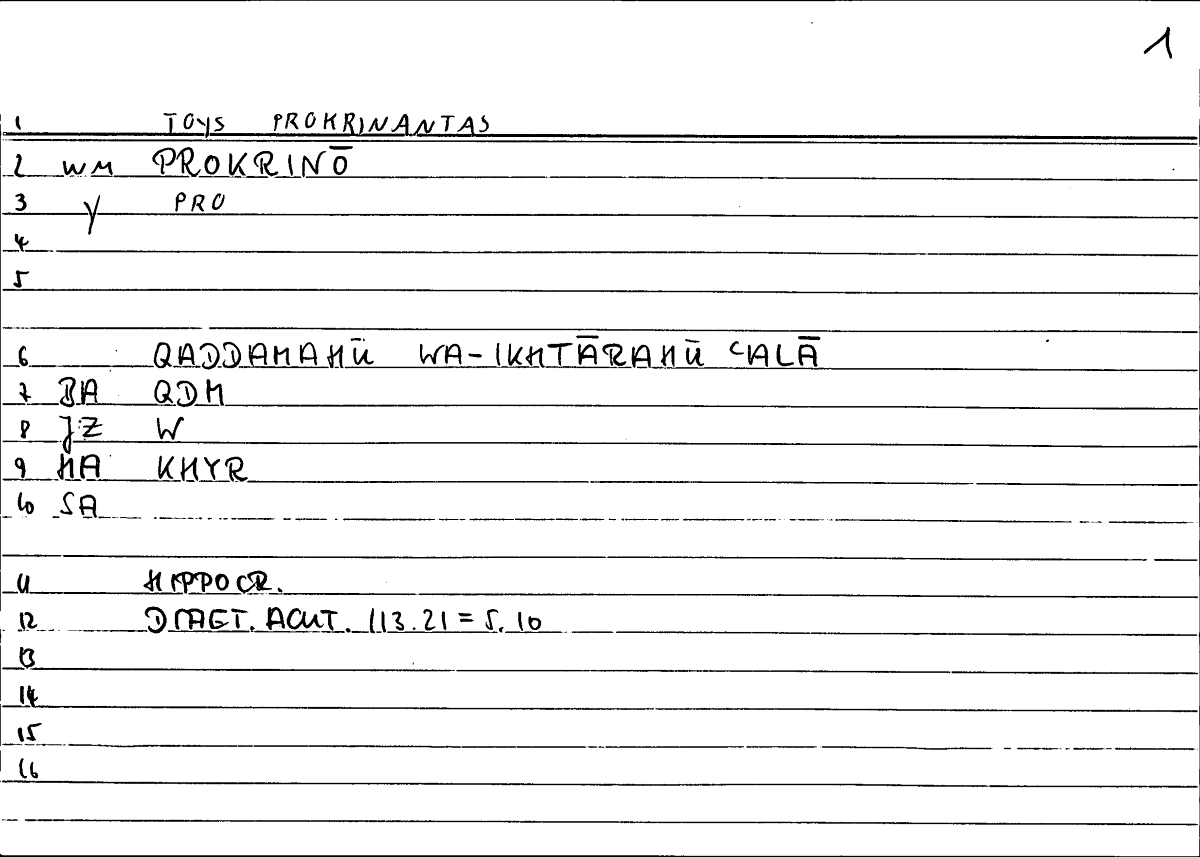 1
1 TOYS PROKRINANTAS
2 WM PROKRINŌ
3 Y PRO
4
5
6 QADDAMAHŪ WA-IKHTĀRAHŪ ʿALĀ
7 BA QDM
8 JZ W
9 HA KHYR
10 SA
11 HIPPOCR.
12 DIAET. ACUT. 113.21 = 5.10
13
14
15
16